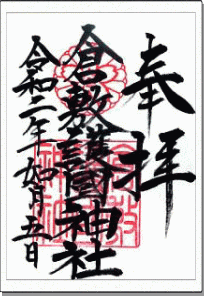 奉拝
倉敷護國神社
令和二年如月五日